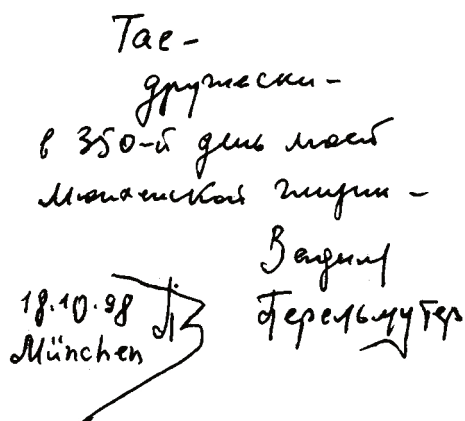 Тае –
дружески –
в 350-й день моей
мюнхенской жизни –
Вадим
Перельмутер
18.10.98
München